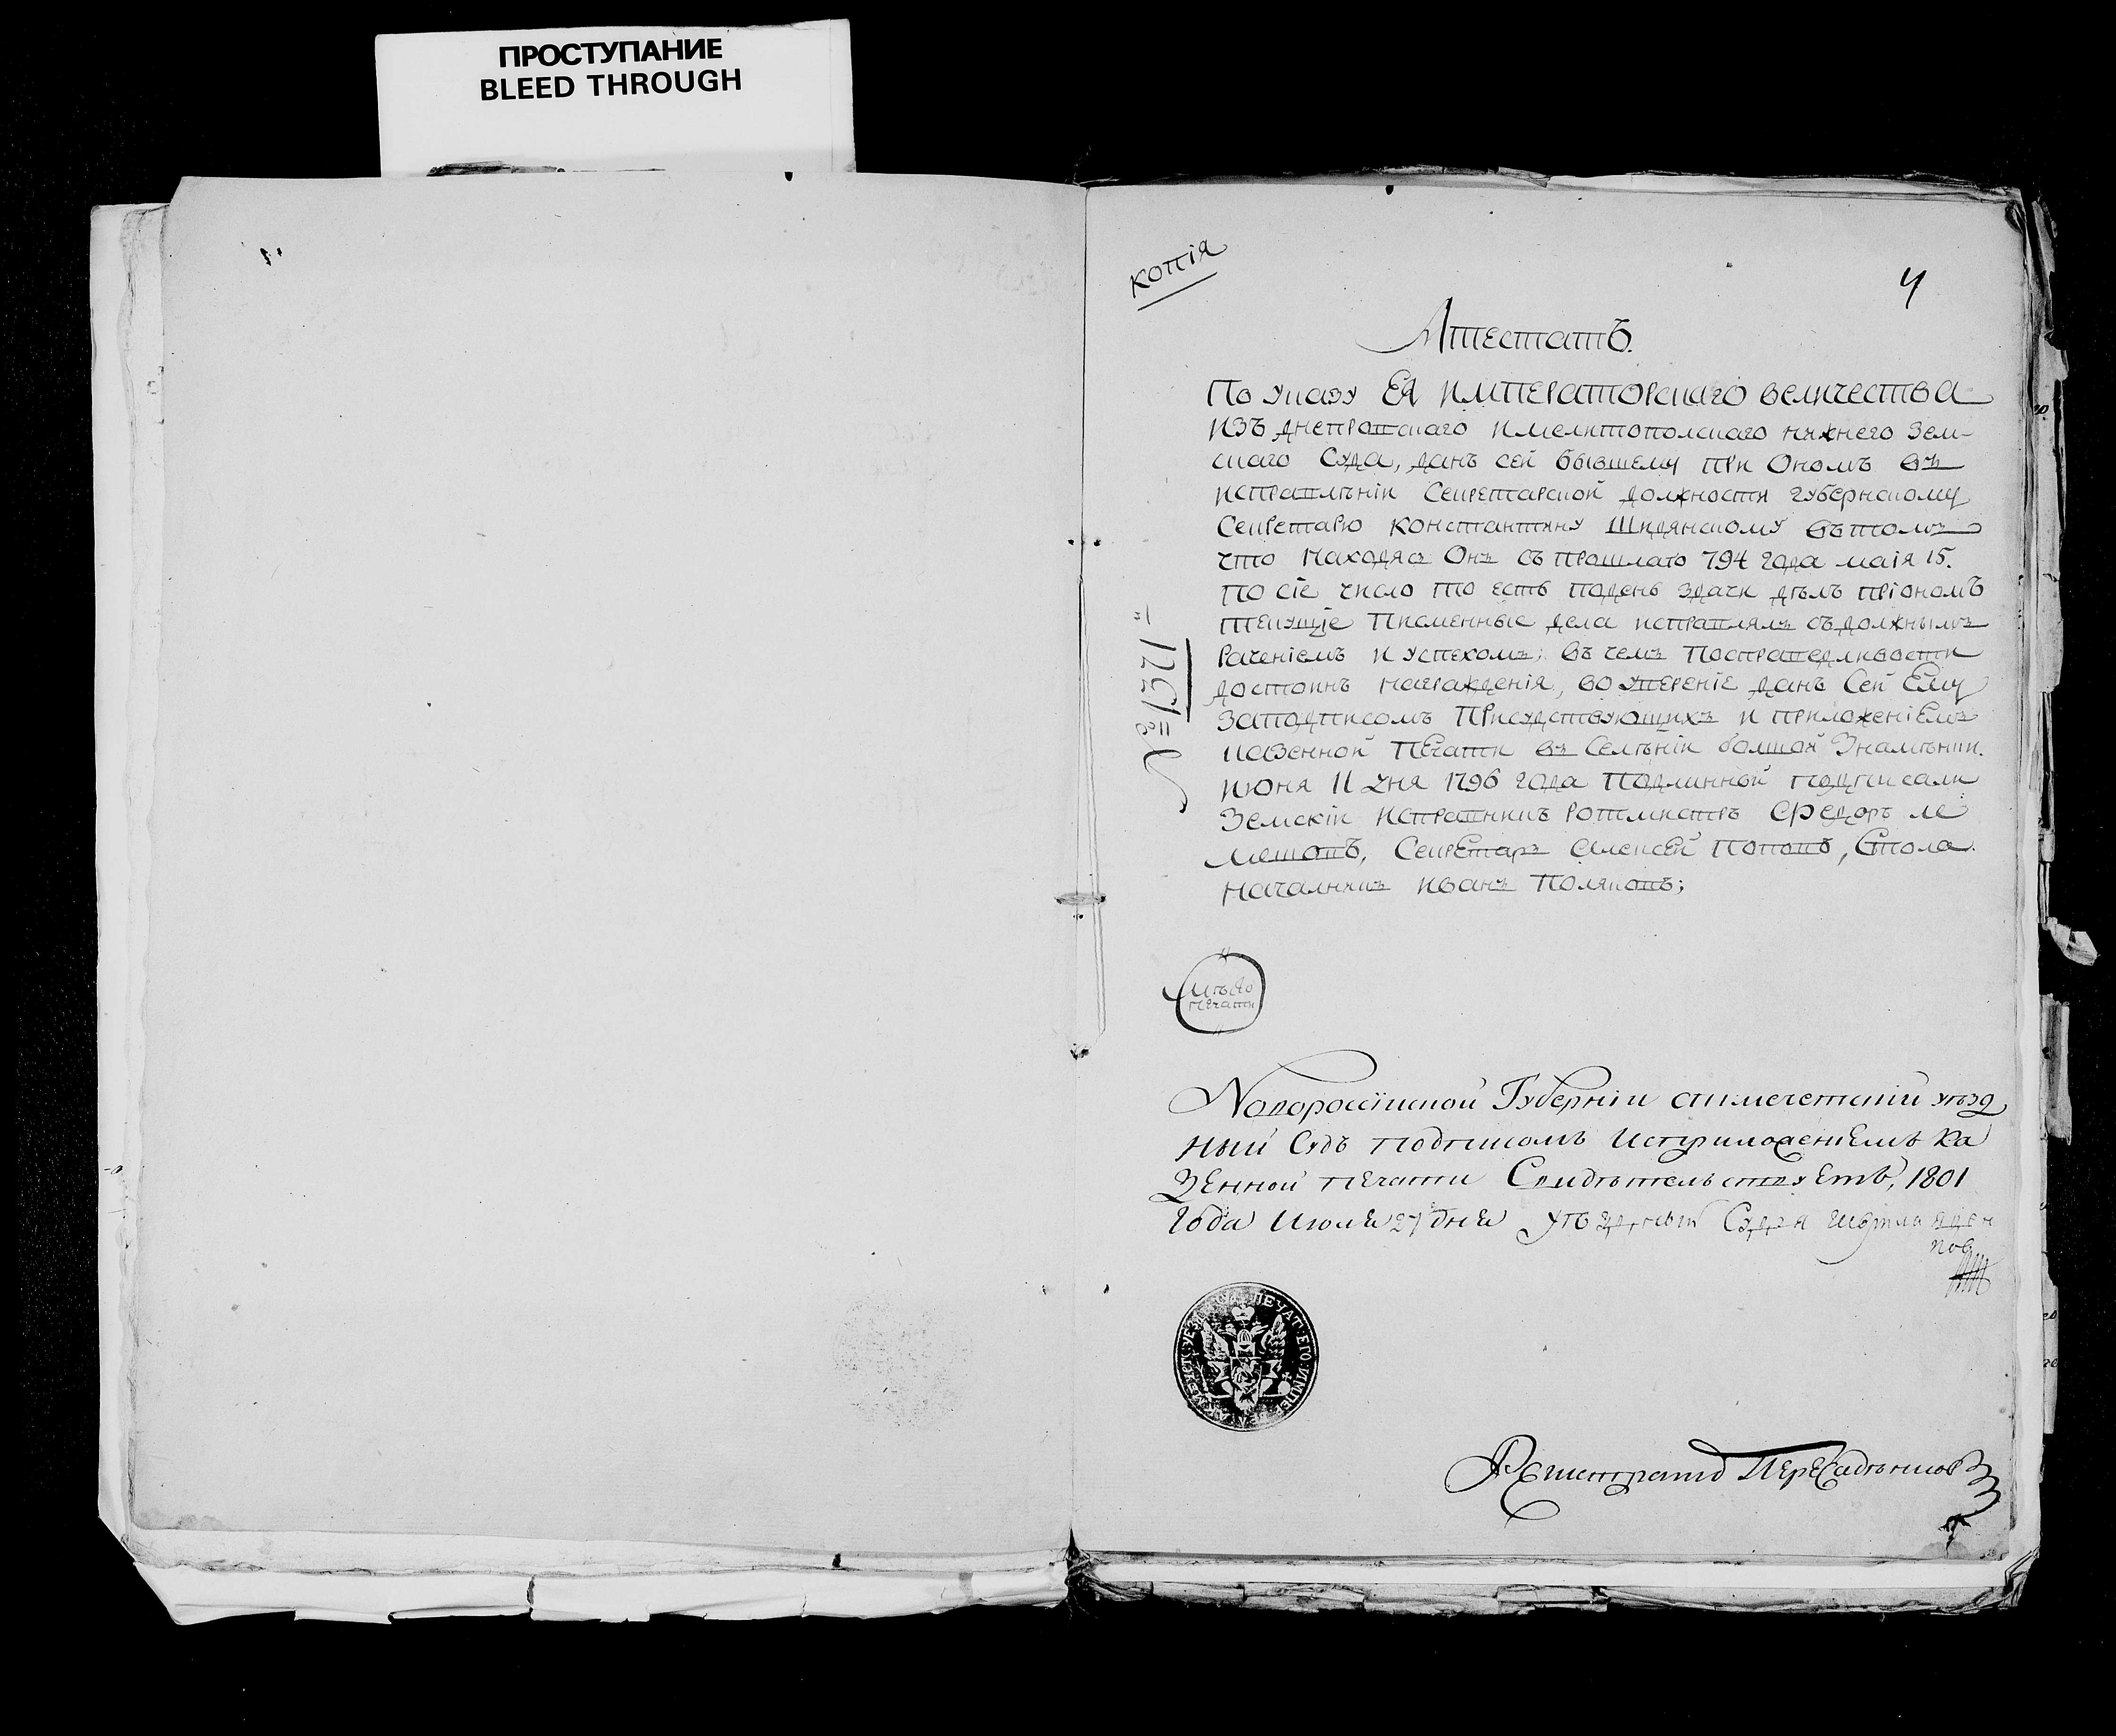 ПРОСТУПАНИЕ
BLEED THROUGH
копія
4
Аттестатъ.
По указу ЕЯ ИМПЕРАТОРСКАГО ВЕЛИЧЕСТВА
изъ днепровскаго имелитополскаго нижнего Зем-
скаго Суда, данъ сей бывшему при Ономъ въ
исправлѣніи Секретарской должности губернскому
Секретарю константину Шидянскому вътомъ
что находяс Онъ съ прошлаго 794 года маія 15.
по сіе число то есть подень здачи дѣлъ пріономъ
текущіе писменные дела исправлялъ съдолжнымъ
Рачениемъ и успехомъ; въ чемъ посправедливости
достоинъ награжденія, во уверение данъ Сей Ему
Заподписомъ присудствующихъ и приложеніемъ
казенной печати въ Селѣніи болшой Знамѣнки.
июня 11 дня 1796 года подлинной подписали
Земскій исправникъ ротмистръ Федоръ ле
мешовъ, Секретарь алексей поповъ, Стола
началникъ иванъ поляковъ;
№ 1321
мѣсто
печати
Новороссійской Губерніи акмечетский уѣзд
ный Судъ подписомъ исприложениемъ ка
зенной печати Свидѣтельствуетъ, 1801
года июля 27 дня уѣздный Судья
Регистраторъ